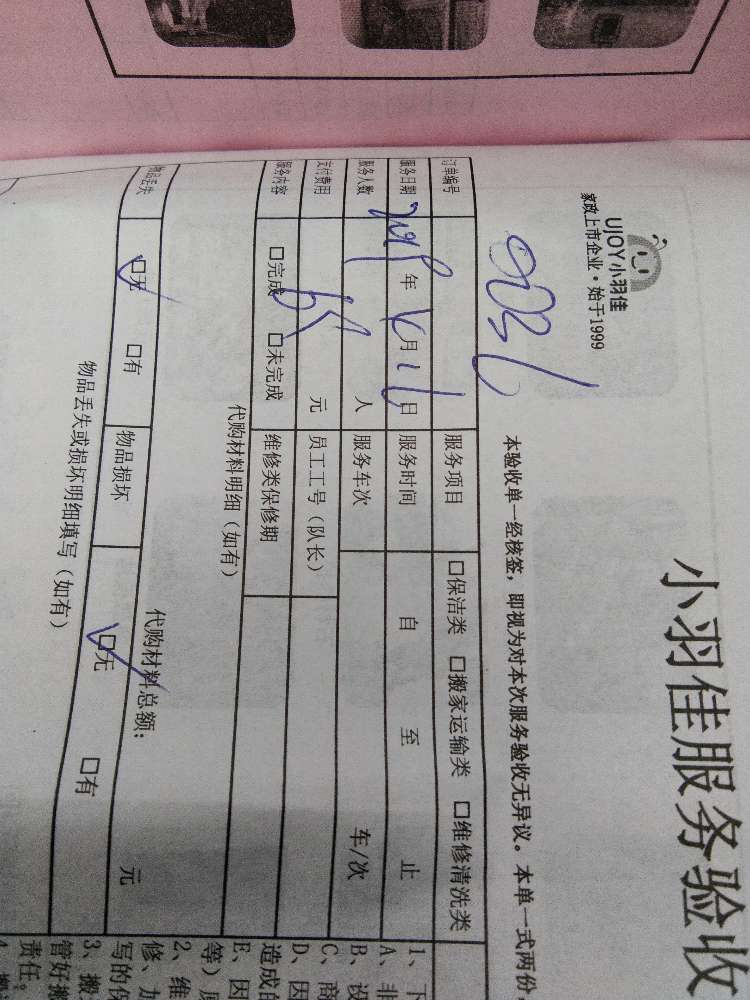 小羽佳服务验收
UJOY小羽佳
家政上市企业·始于1999
本验收单一经核签，即视为对本次服务验收无异议。本单一式两份，
订单编号 服务项目 □保洁类 □搬家运输类 □维修清洗类
服务日期 年 月 日 服务时间 自 至 止
服务人数 人 服务车次 车/次
支付费用 元 员工工号（队长）
服务内容 □完成 □未完成 维修类保修期
代购材料明细（如有）
代购材料总额： 元
物品丢失 □无 □有 物品损坏 □无 □有
物品丢失或损坏明细填写（如有）
1、
A、
B、
C、商
D、因
造成的
E、因
等）
2、维
修、加
写的保
3、搬
管好搬
责任。